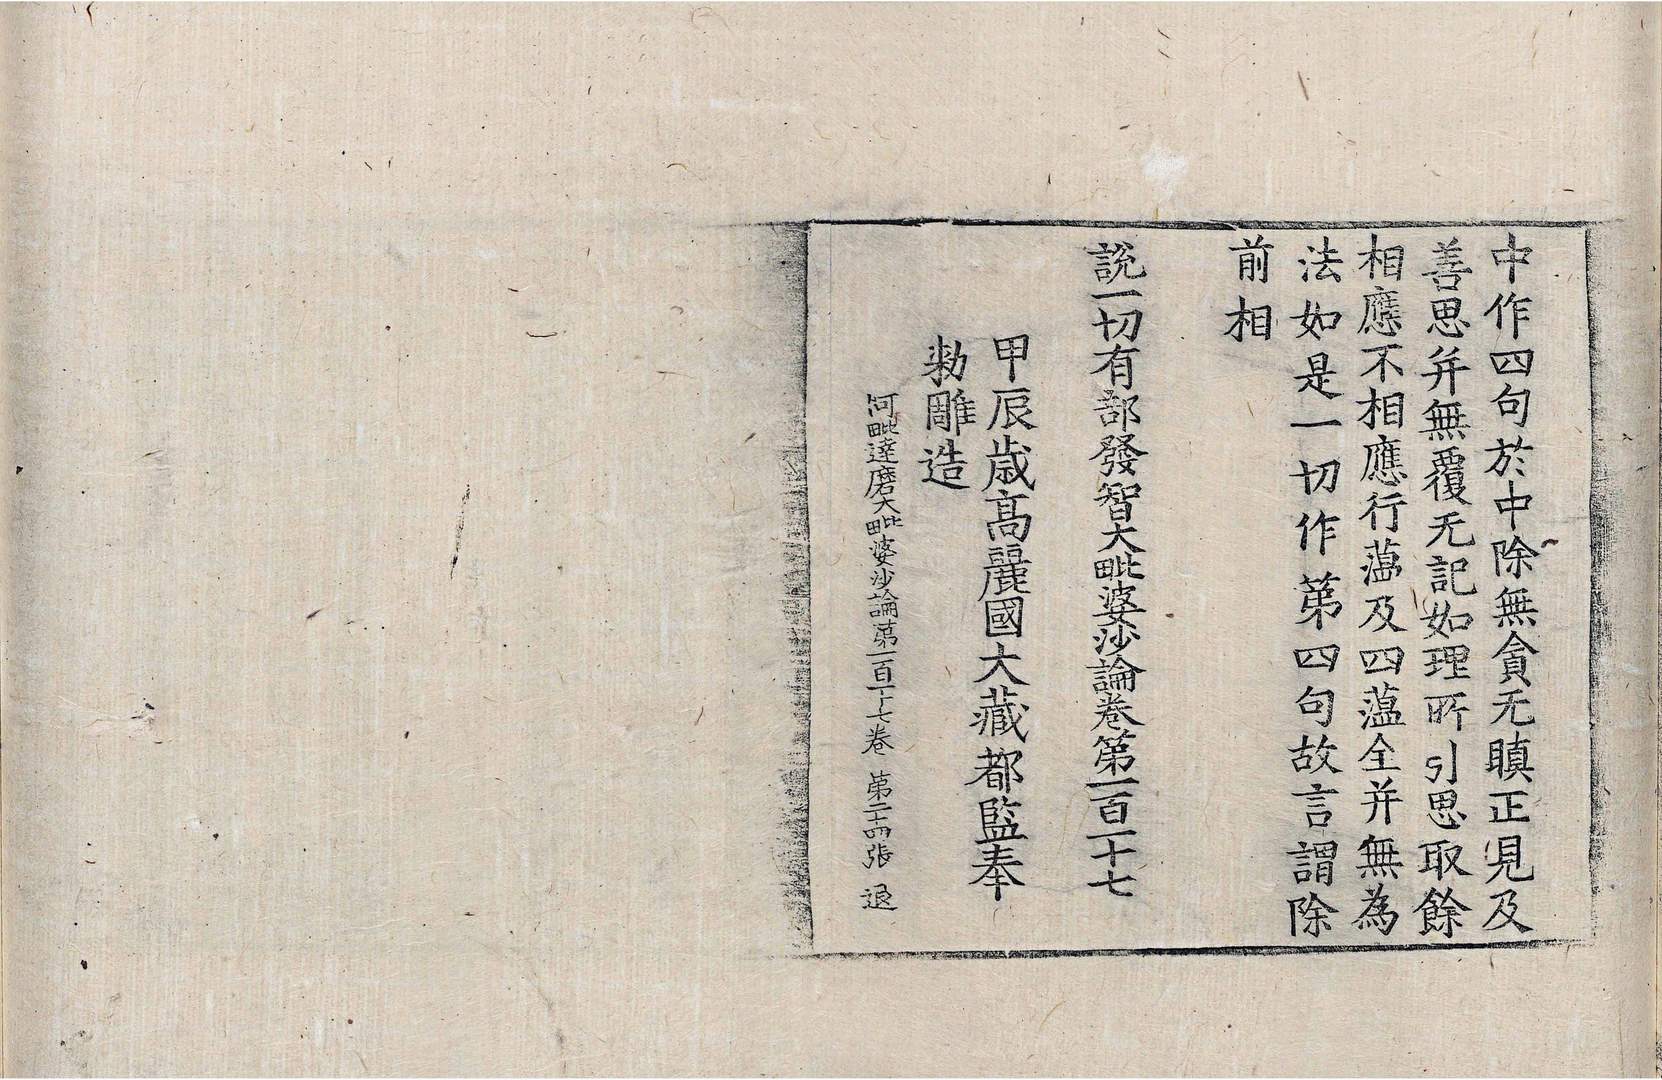 中作四句於中除無貪无瞋正見及
善思并無覆无記如理所引思取餘
相應不相應行蕰及四蕰全并無為
法如是一切作第四句故言謂除
前相
說一切有部發智大毗婆沙論卷第一百一十七
甲辰歲高麗國大藏都監奉
勅雕造
阿毗達磨大毗婆沙論第一百一十七卷 第二十四張 退